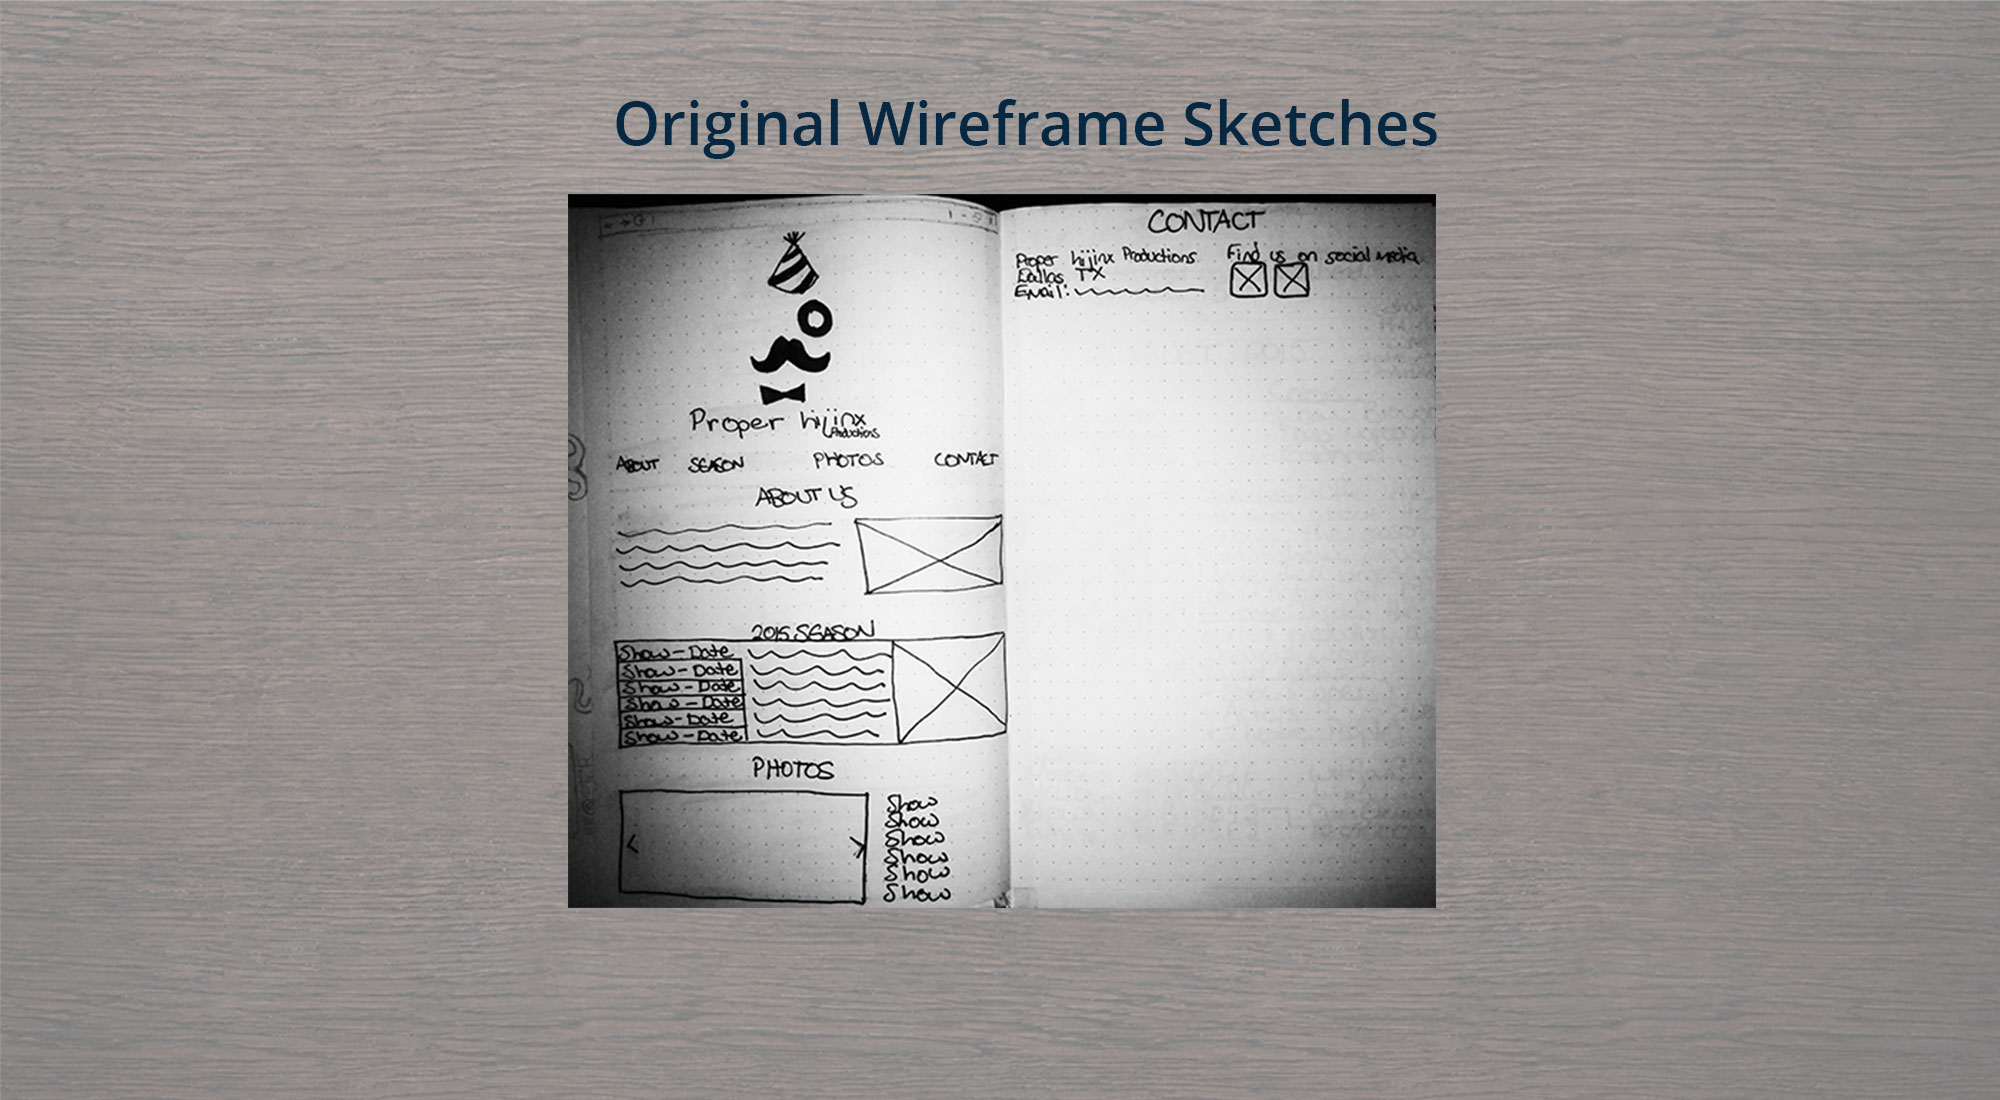 Original Wireframe Sketches
Proper hijinx
Productions
ABOUT SEASON PHOTOS CONTACT
ABOUT US
2015 SEASON
Show - Date
Show - Date
Show - Date
Show - Date
Show - Date
Show - Date
PHOTOS
< >
Show
Show
Show
Show
Show
Show
CONTACT
Proper hijinx Productions
Dallas TX
Email:
Find us on social media